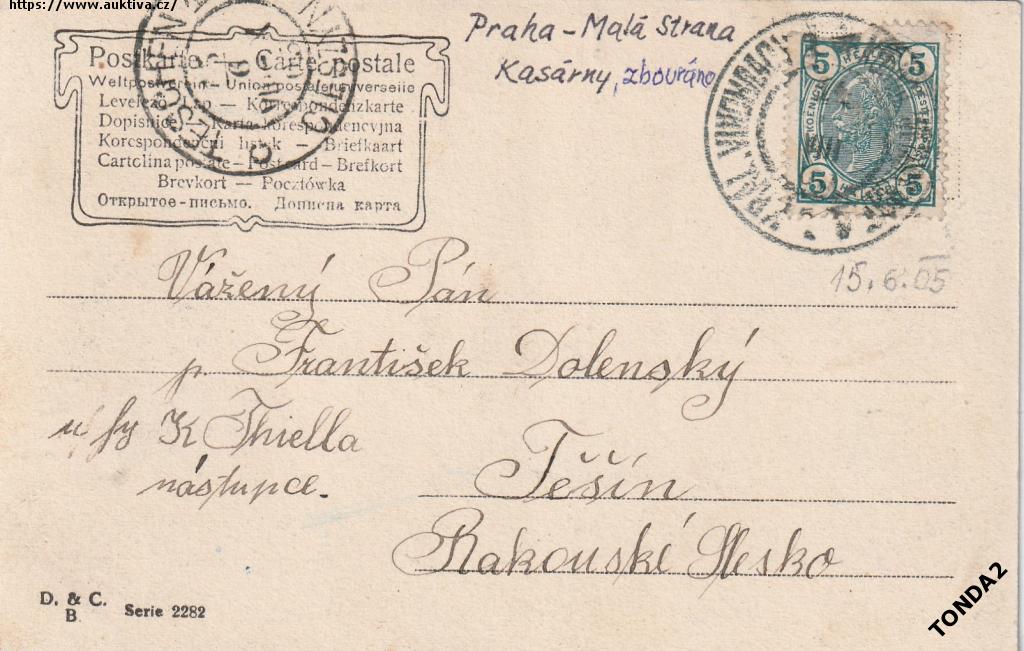 https://www.auktiva.cz/
Praha - Malá Strana
Kasárny, zbouráno
Postkarte - Carte postale
Weltpostverein - Union postale universelle
Levelező-Lap - Korrespondenzkarte
Dopisnice - Karta korespondencyjna
Korespondenční lístek - Briefkaart
Cartolina postale - Post card - Brefkort
Brevkort - Pocztówka
Открытое-письмо. Дописна карта
5 5
5 5
15.6.05
Vážený Pán
p. František Dolenský
u fy K Thiella
nástupce.
Těšín
Rakouské Slesko
D. & C.
B.
Serie 2282
TONDA2